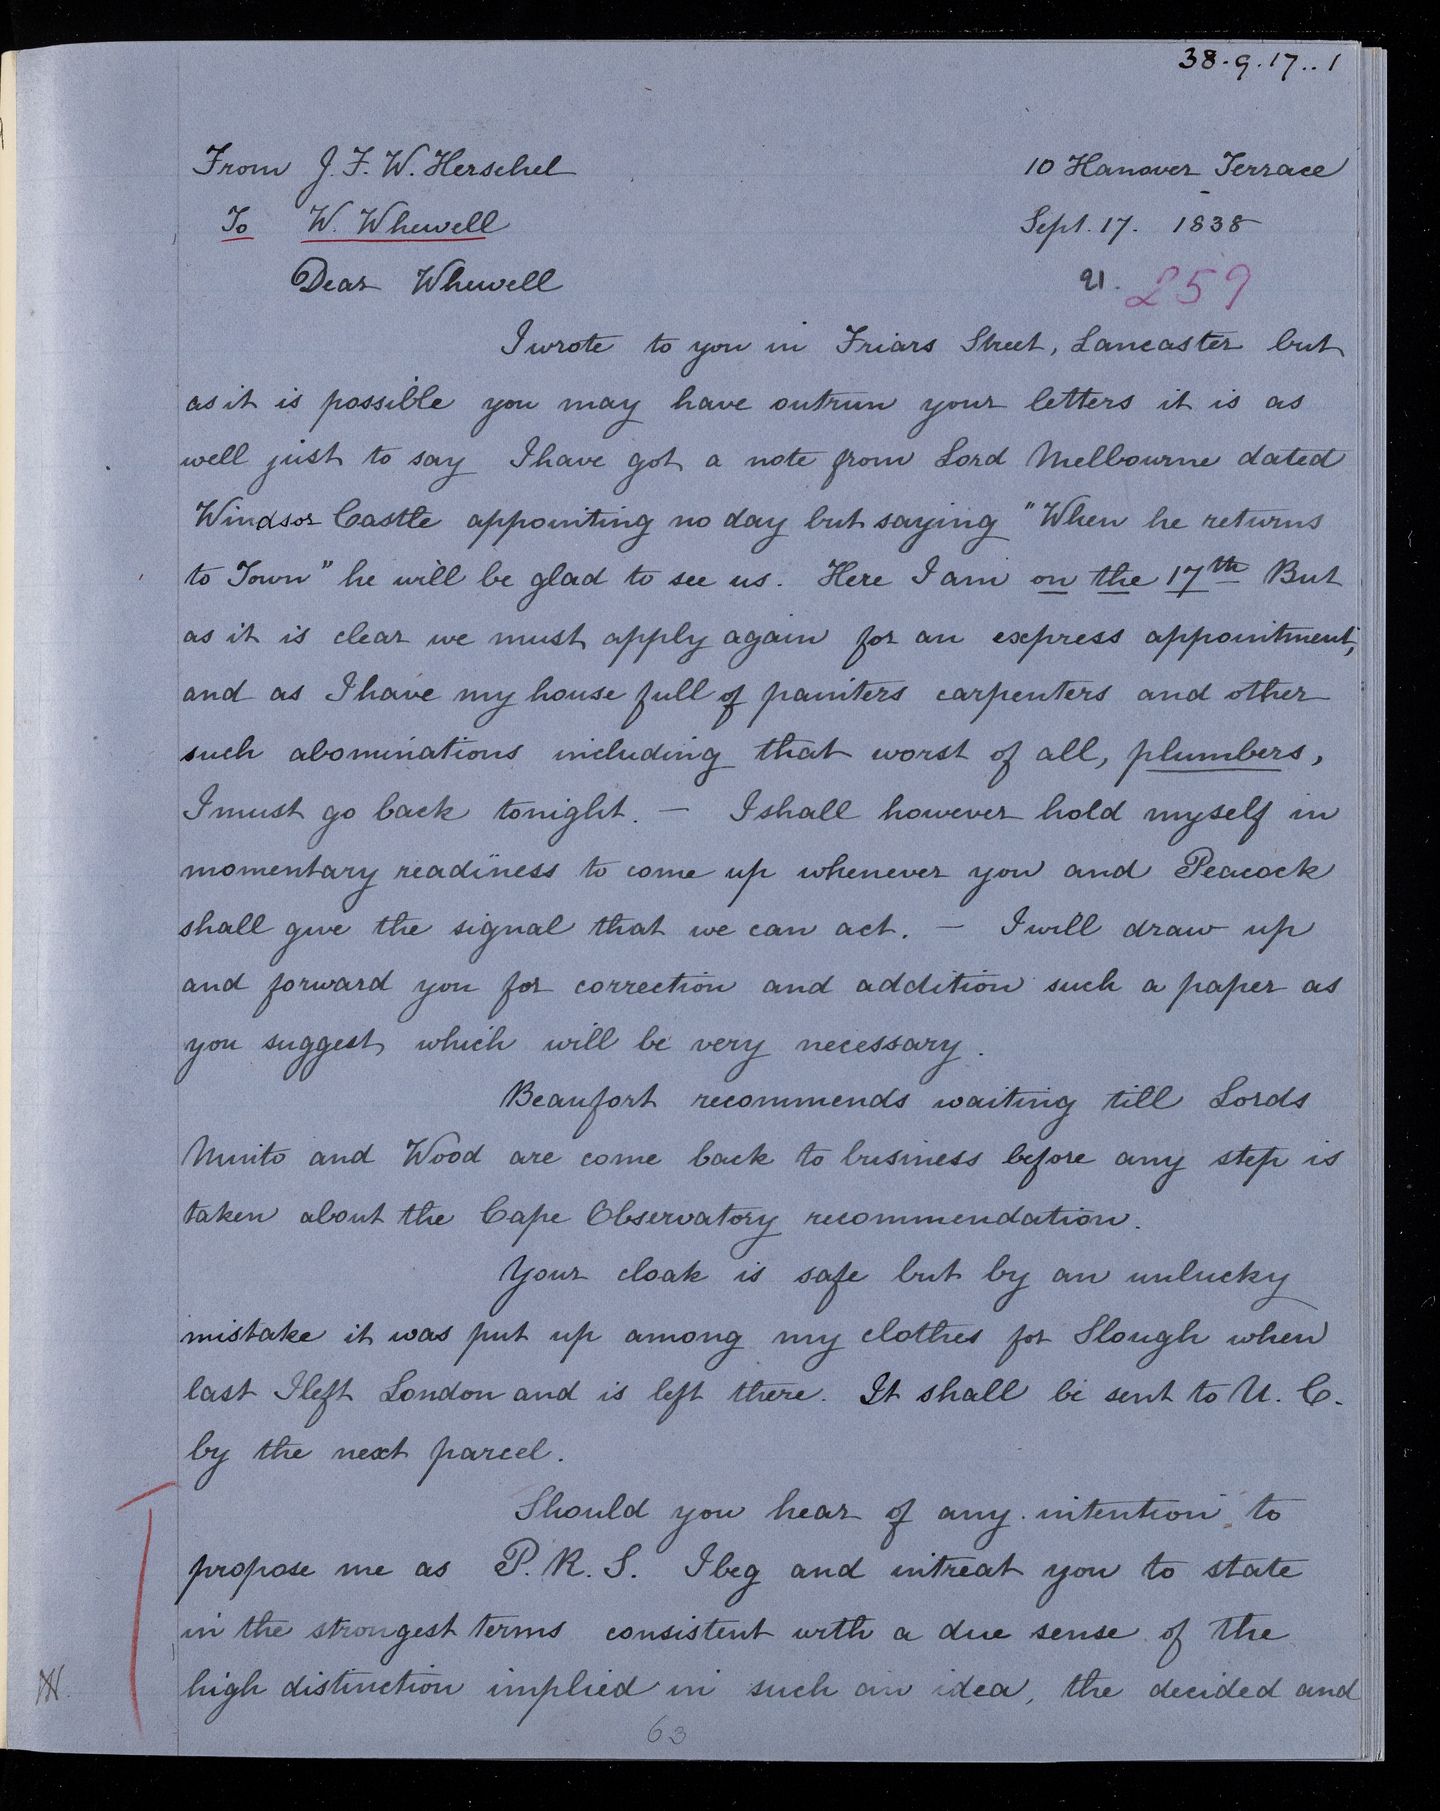 38.9.17..1
From J. F. W. Herschel
10 Hanover Terrace
To W. Whewell
Sept. 17. 1838
Dear Whewell
21. 259
I wrote to you in Friars Street, Lancaster but
as it is possible you may have outrun your letters it is as
well just to say I have got a note from Lord Melbourne dated
Windsor Castle appointing no day but saying "When he returns
to Town" he will be glad to see us. Here I am on the 17th But
as it is clear we must apply again for an express appointment,
and as I have my house full of painters carpenters and other
such abominations including that worst of all, plumbers,
I must go back tonight. — I shall however hold myself in
momentary readiness to come up whenever you and Peacock
shall give the signal that we can act. — I will draw up
and forward you for correction and addition such a paper as
you suggest which will be very necessary.
Beaufort recommends waiting till Lords
Minto and Wood are come back to business before any step is
taken about the Cape Observatory recommendation.
Your cloak is safe but by an unlucky
mistake it was put up among my clothes for Slough when
last I left London and is left there. It shall be sent to U. C.
by the next parcel.
Should you hear of any intention to
propose me as P. R. S. I beg and intreat you to state
in the strongest terms consistent with a due sense of the
high distinction implied in such an idea, the decided and
63